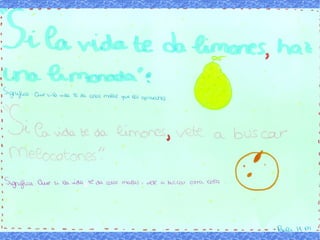 Si la vida te da limones, haz
una limonada"!
Significa: Que si la vida te da cosas malas que
"Si la vida te da limones, vete a buscar
melocotones"
Significa: Que si la vida te da cosas malas, vete a buscar otra cosa